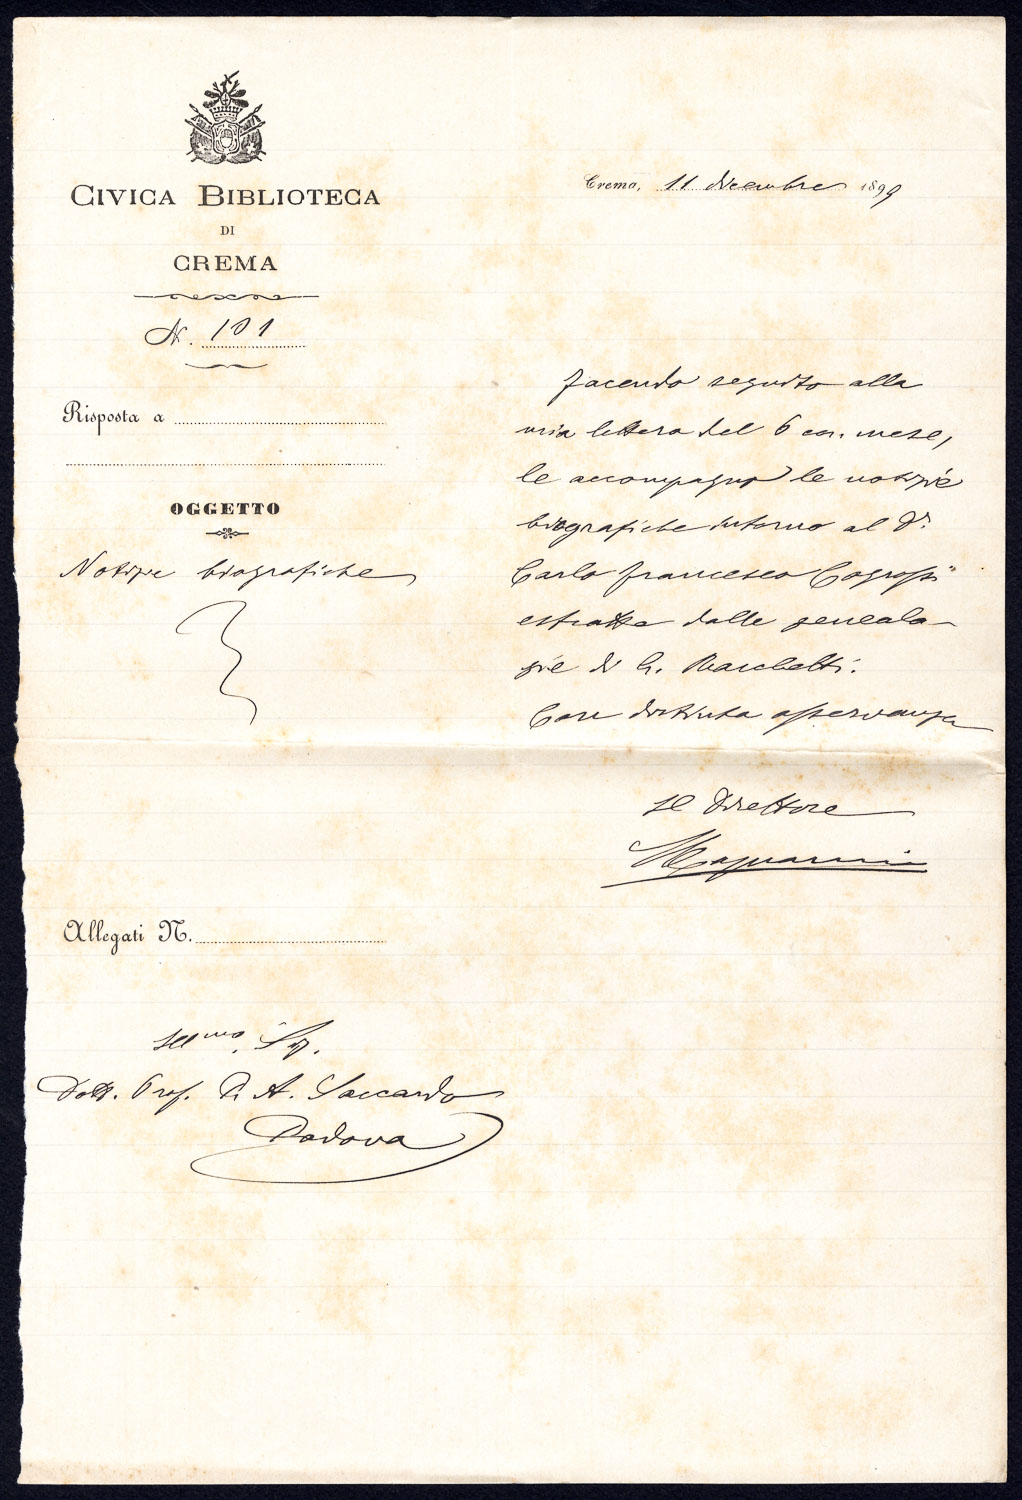 CIVICA BIBLIOTECA
DI
CREMA
N. 101
Risposta a
OGGETTO
Notizie biografiche
Crema, 11 dicembre 1899
Facendo seguito alla
mia lettera del 6 corr. mese,
le accompagno le notizie
biografiche intorno al Dr.
Carlo Francesco Cogrossi
estratte dalle genealo-
gie di G. Racchetti.
Con distinta osservanza
Il Direttore
Magnani
Allegati N.
Illmo. Sig.
Dott. Prof. P. A. Saccardo
Padova